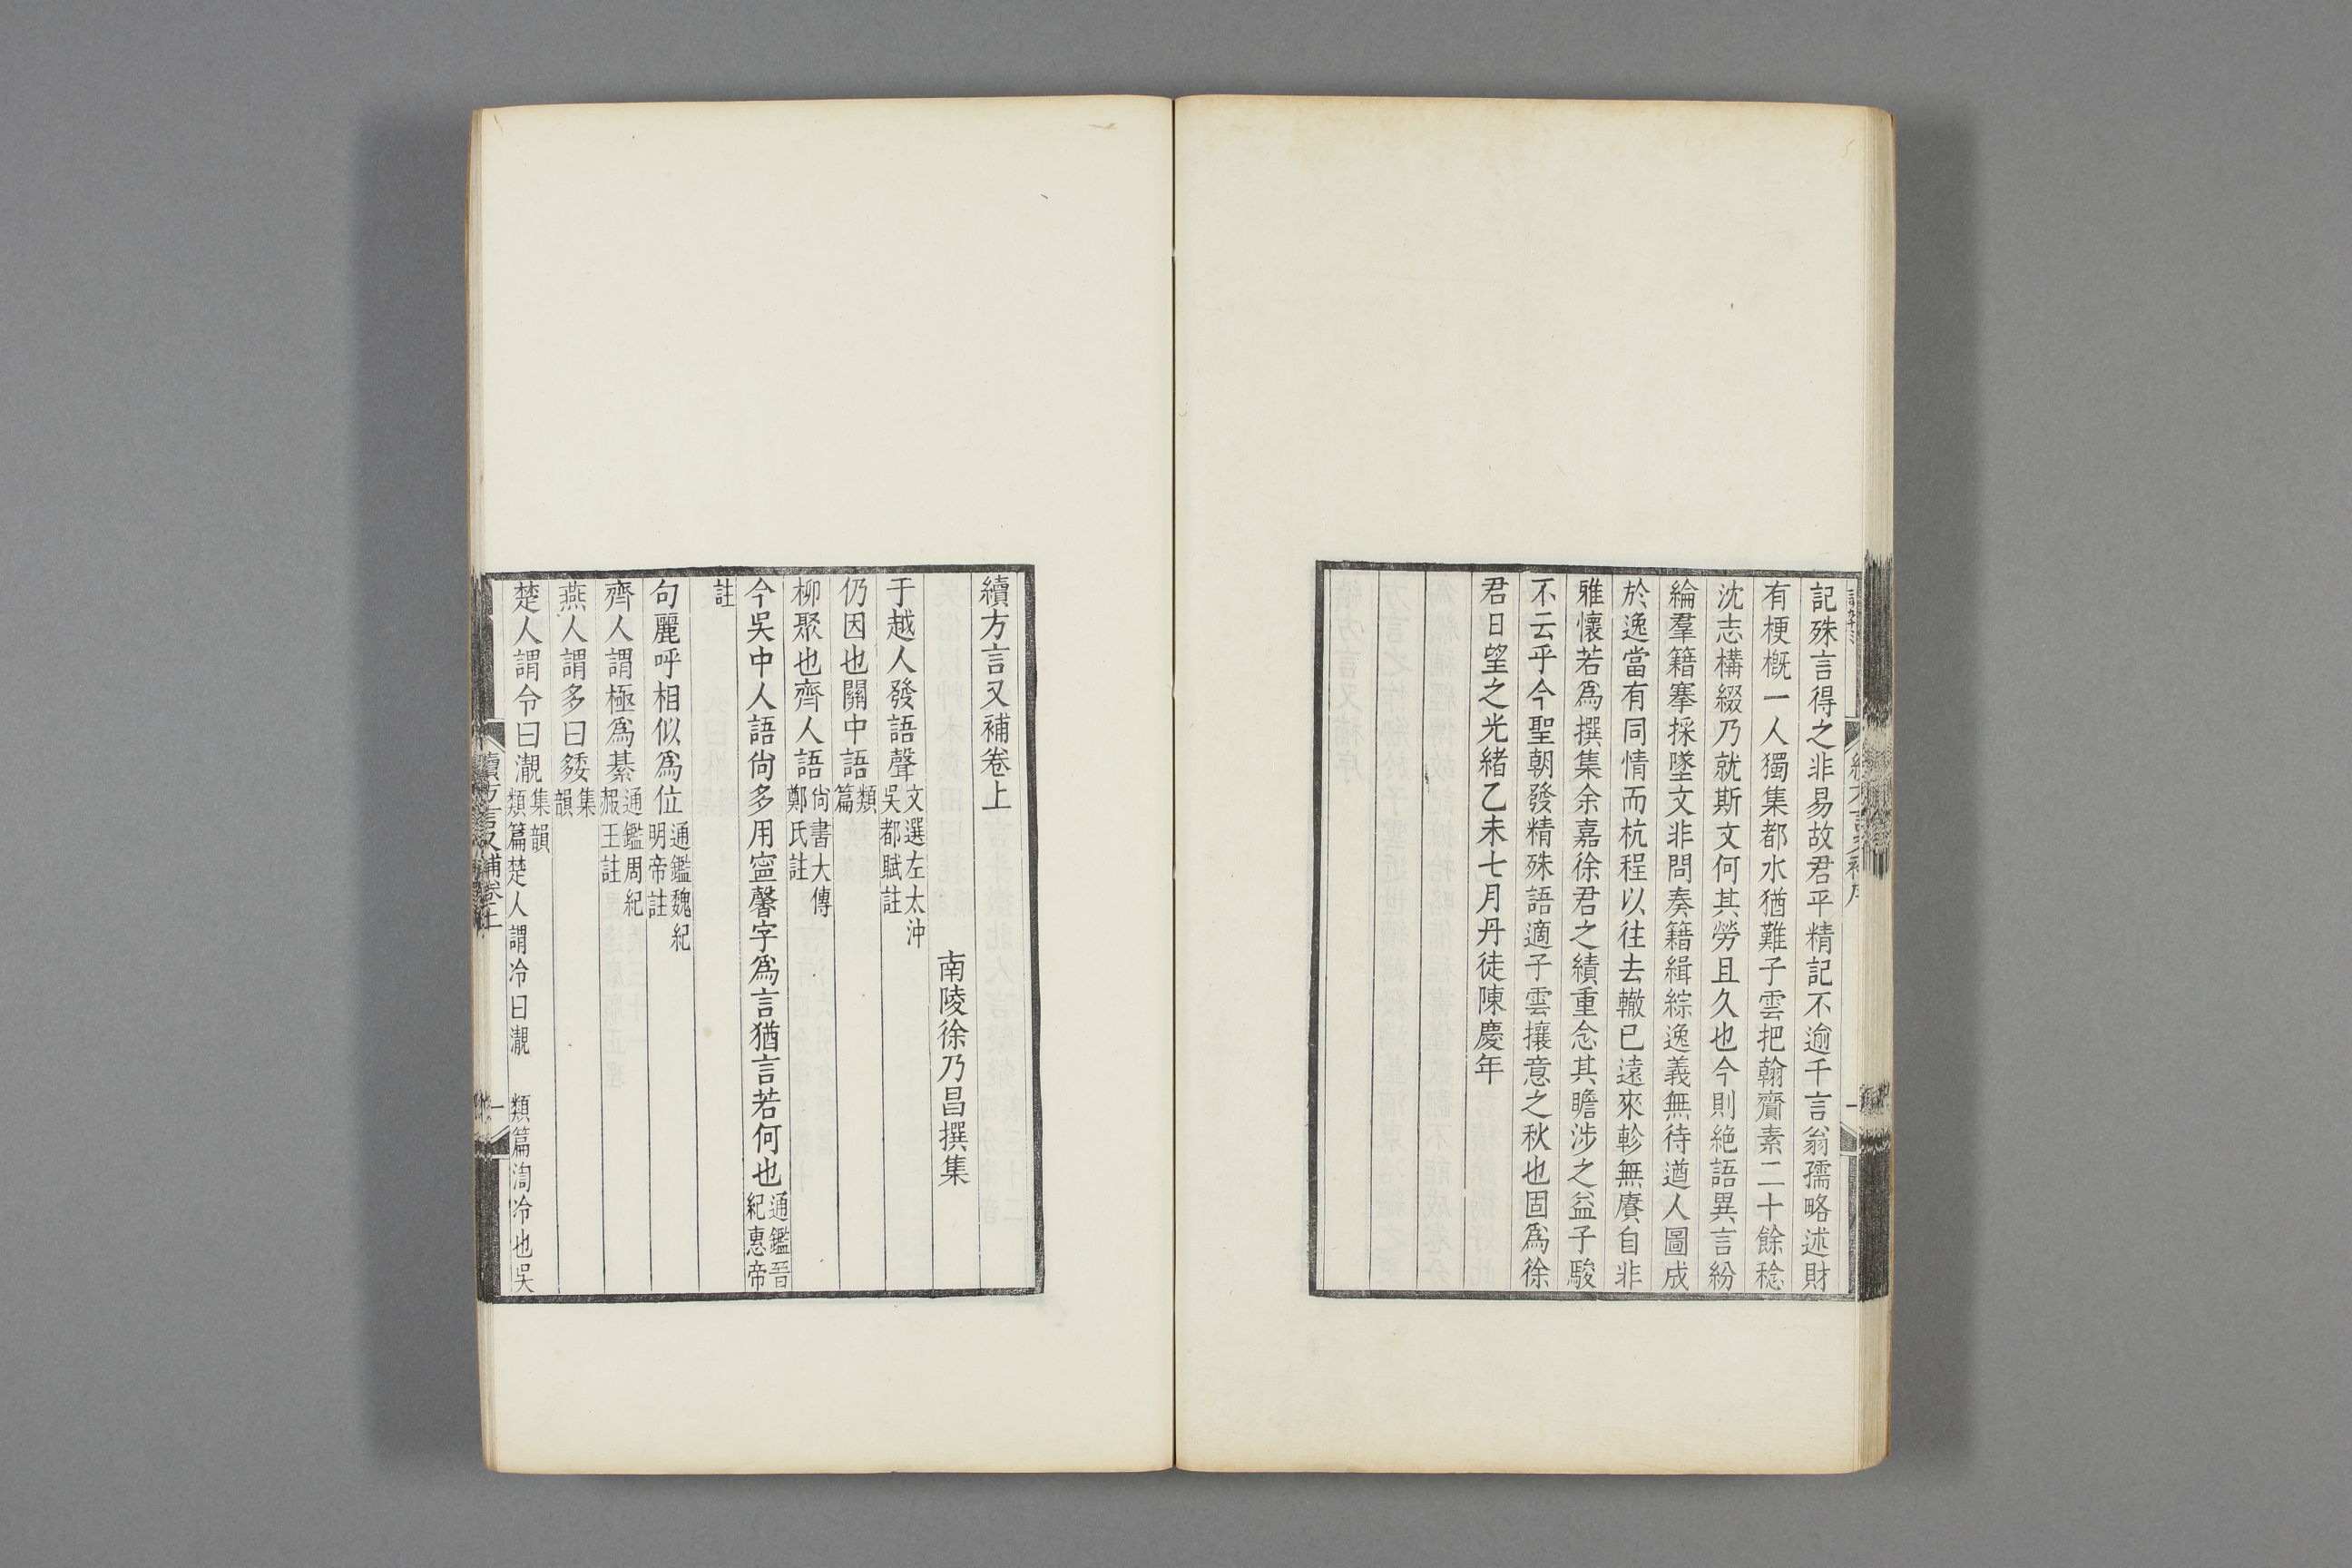 記殊言得之非易故君平精記不逾千言翁孺略述財
有梗槪一人獨集都水猶難子雲把翰齎素二十餘稔
沈志構綴乃就斯文何其勞且久也今則絶語異言紛
綸羣籍搴採墜文非問奏籍緝綜逸義無待遒人圖成
於逸當有同情而杭程以往去轍已遠來軫無賡自非
雅懷若爲撰集余嘉徐君之績重念其瞻涉之益子駿
不云乎今聖朝發精殊語適子雲攘意之秋也固爲徐
君日望之光緒乙未七月丹徒陳慶年
續方言又補卷上
南陵徐乃昌撰集
于越人發語聲文選左太沖吳都賦註
仍因也關中語類篇
柳聚也齊人語尙書大傳鄭氏註
今吳中人語尙多用寍馨字爲言猶言若何也通鑑晉紀惠帝
註
句麗呼相似爲位通鑑魏紀明帝註
齊人謂極爲綦通鑑周紀赧王註
燕人謂多曰㛂集韻
楚人謂令曰瀙集韻類篇楚人謂冷曰瀙 類篇渹冷也吳
續方言又補卷上
一